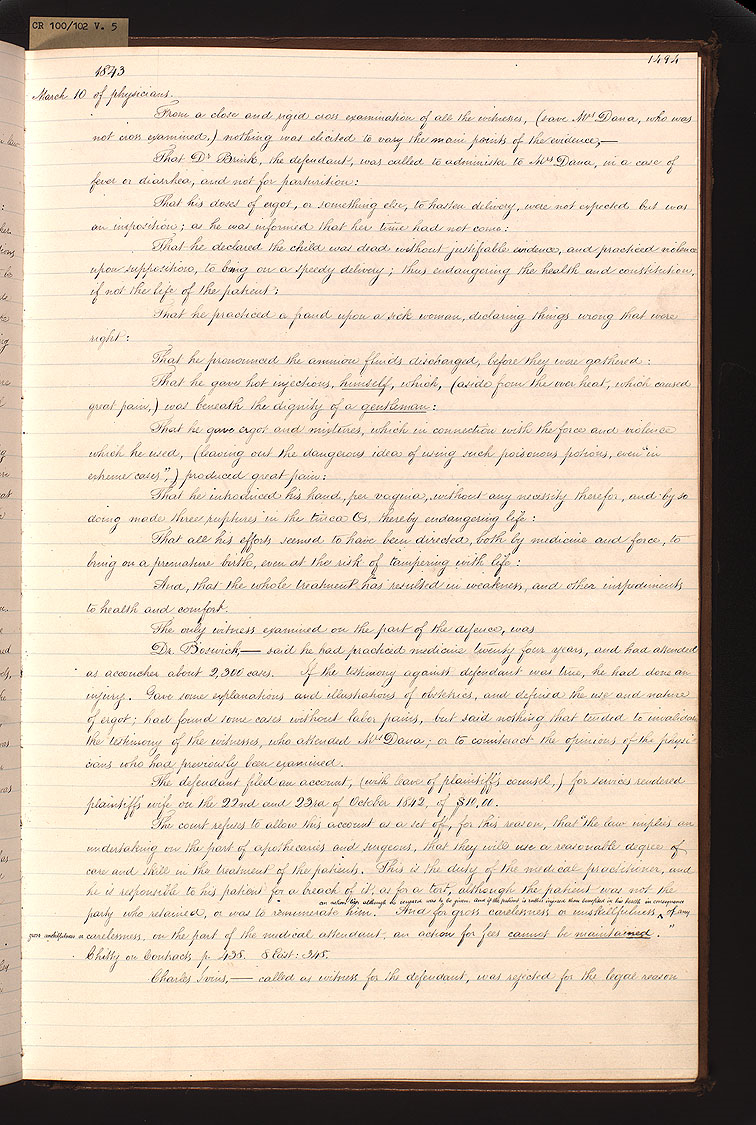 CR 100/102 V. 5
1494
1843
March 10 of physicians.
From a close and rigid cross examination of all the witnesses, (save Mrs Dana, who was
not cross examined,) nothing was elicited to vary the main points of the evidence;—
That Dr Brink, the defendant, was called to administer to Mrs Dana, in a case of
fever or diarrhea, and not for parturition:
That his doses of ergot, or something else, to hasten delivery, were not expected but was
an imposition; as he was informed that her time had not come:
That he declared the child was dead without justifiable evidence, and practiced violence
upon supposition, to bring on a speedy delivery; thus endangering the health and constitution,
if not the life of the patient:
That he practiced a fraud upon a sick woman, declaring things wrong that were
right:
That he pronounced the amnion fluids discharged, before they were gathered:
That he gave hot injections, himself, which, (aside from the over heat, which caused
great pain,) was beneath the dignity of a gentleman:
That he gave ergot and mixtures, which in connection with the force and violence
which he used, (leaving out the dangerous idea of using such poisonous potions, even "in
extreme cases",) produced great pain:
That he introduced his hand, per vagina, without any necessity therefor, and by so
doing made three ruptures in the Os, thereby endangering life:
That all his efforts seemed to have been directed, both by medicine and force, to
bring on a premature birth, even at the risk of tampering with life:
And, that the whole treatment has resulted in weakness, and other impediments
to health and comfort.
The only witness examined on the part of the defence, was
Dr. Boswick,— said he had practiced medicine twenty four years, and had attended
as accoucher about 2,300 cases. If the testimony against defendant was true, he had done an
injury. Gave some explanations and illustrations of obstetrics, and defined the use and nature
of ergot; had found some cases without labor pains, but said nothing that tended to invalidate
the testimony of the witnesses, who attended Mrs Dana; or to counteract the opinions of the physi-
cians who had previously been examined.
The defendant filed an account, (with leave of plaintiff's counsel,) for services rendered
plaintiff's wife on the 22nd and 23rd of October 1842, of $10,00.
The court refuses to allow this account as a set off, for this reason, that "the law implies an
undertaking on the part of apothecaries and surgeons, that they will use a reasonable degree of
care and skill in the treatment of the patients. This is the duty of the medical practitioner, and
he is responsible to his patient for a breach of it, as for a tort, although the patient was not the
party who retained, or was to remunerate him. And for gross carelessness or unskilfulness,
an action lies although no reward was to be given. And if the patient is rather injured than benefited in his health in consequence of any
gross unskilfulness or carelessness, on the part of the medical attendant, an action for fees cannot be maintained."
Chitty on Contracts p. 435. 8 East: 348.
Charles Ivins,— called as witness for the defendant, was rejected for the legal reason